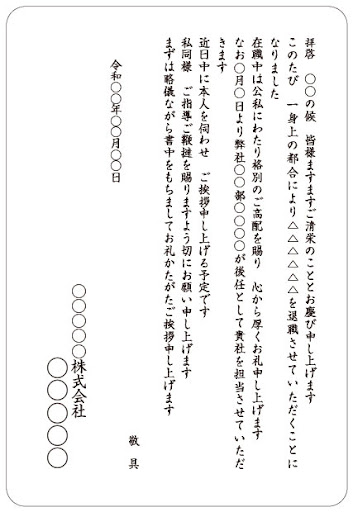 拝啓　〇〇の候　皆様ますますご清栄のこととお慶び申し上げます
このたび　一身上の都合により△△△△△△を退職させていただくことに
なりました
在職中は公私にわたり格別のご高配を賜り　心から厚くお礼申し上げます
なお〇月〇日より弊社〇〇部〇〇〇〇が後任として貴社を担当させていただ
きます
近日中に本人を伺わせ　ご挨拶申し上げる予定です
私同様　ご指導ご鞭撻を賜りますよう切にお願い申し上げます
まずは略儀ながら書中をもちましてお礼かたがたご挨拶申し上げます
敬具
令和〇〇年〇〇月〇〇日
〇〇〇〇〇株式会社
〇〇〇〇〇